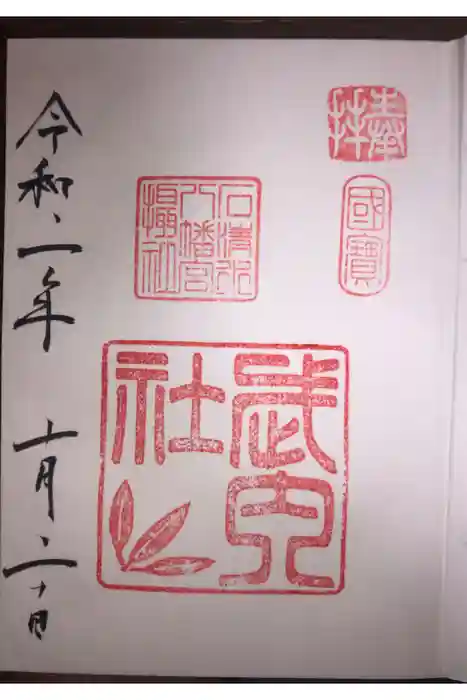 奉拝
國寶
石清水
八幡宮
攝社
武内
社
令和二年 十月二十日